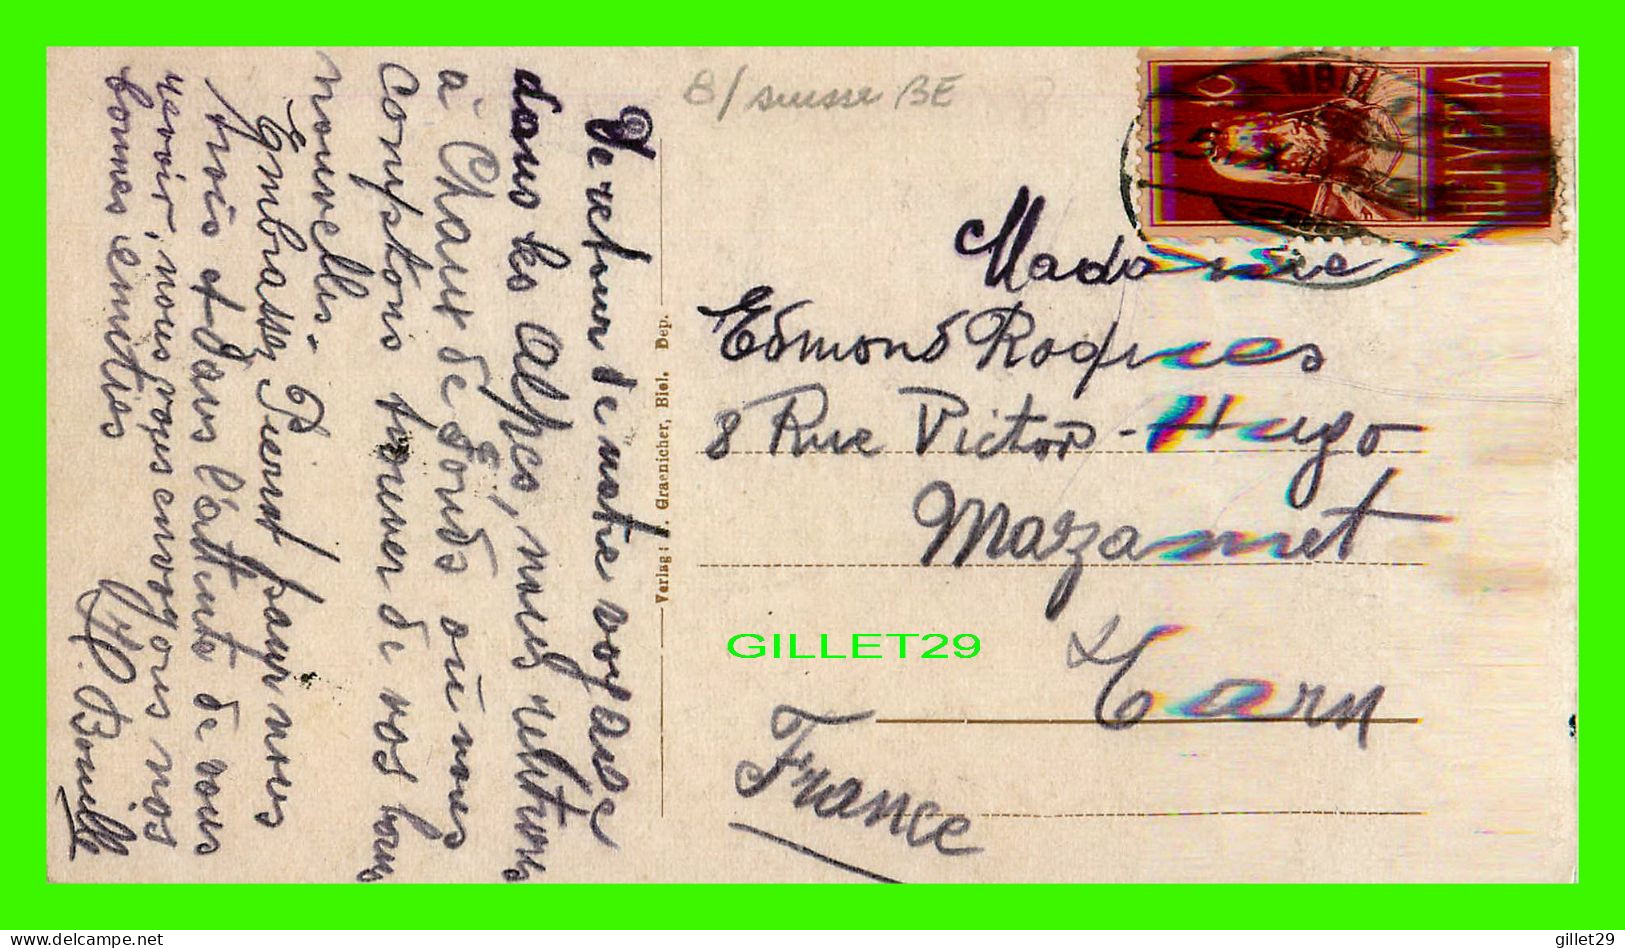 De retour de notre voyage
dans les Alpes, nous rentrons
à Chaux de Fonds où nous
comptons trouver de vos bonnes
nouvelles.
Embrassez Pierrot pour nous
trois et dans l'attente de vous
revoir, nous vous envoyons nos
bonnes amitiés
Bouille
Verlag: Graenicher, Biel. Dep.
8/ suisse BE
10
HELVETIA
Madame
Edmond Roques
8 Rue Victor-Hugo
Mazamet
Tarn
France
GILLET29
gillet29